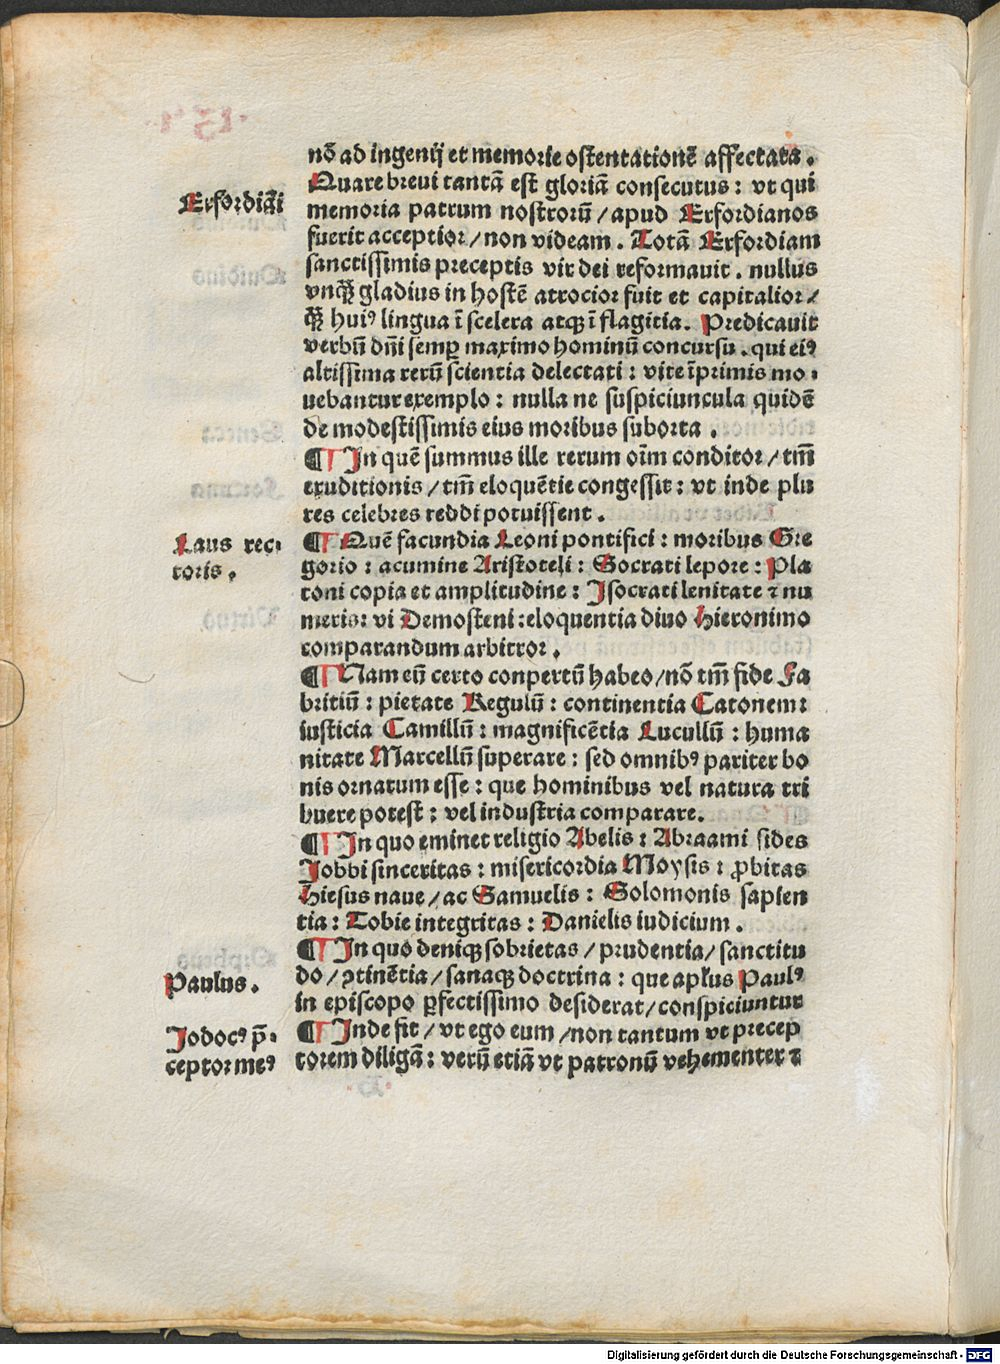 nō ad ingenij et memorie ostentationē affectata.
Quare breui tantā est gloriā consecutus: vt qui
Erfordiāi
memoria patrum nostrorū/apud Erfordianos
fuerit acceptior/non videam. Totā Erfordiam
sanctissimis preceptis vir dei reformauit. nullus
vnqꝫ gladius in hostē atrocior fuit et capitalior/
qꝫ huiꝰ lingua ī scelera atqꝫ ī flagitia. Predicauit
verbū dn̄i semꝑ maximo hominū concursu. qui eiꝰ
altissima rerū scientia delectati: vite īprimis mo-
uebantur exemplo: nulla ne suspiciuncula quidē
de modestissimis eius moribus suborta.
¶ In quē summus ille rerum oīm conditor/tm̄
eruditionis/tm̄ eloquētie congessit: vt inde plu
res celebres reddi potuissent.
Laus rec-
toris.
¶ Quē facundia Leoni pontifici: moribus Gre
gorio: acumine Aristoteli: Socrati lepore: Pla
toni copia et amplitudine: Isocrati lenitate ⁊ nu
meris: vi Demosteni: eloquentia diuo Hieronimo
comparandum arbitror.
¶ Nam eū certo conpertū habeo/nō tm̄ fide Fa
britiū: pietate Regulū: continentia Catonem:
iusticia Camillū: magnificētia Lucullū: huma
nitate Marcellū superare: sed omnibꝰ pariter bo
nis ornatum esse: que hominibus vel natura tri
buere potest: vel industria comparare.
¶ In quo eminet religio Abelis: Abraami fides
Jobbi sinceritas: misericordia Moysis: ꝓbitas
Hiesus naue/ac Samuelis: Solomonis sapien
tia: Tobie integritas: Danielis iudicium.
¶ In quo deniqꝫ sobrietas/prudentia/sanctitu
do/ꝯtinētia/sanaqꝫ doctrina: que aplus Paulꝰ
Paulus.
in episcopo ꝑfectissimo desiderat/conspiciuntur
Jodocꝰ p̄-
ceptor meꝰ
¶ Inde fit/vt ego eum/non tantum vt precep
torem diligā: verū etiā vt patronū vehementer ⁊
Digitalisierung gefördert durch die Deutsche Forschungsgemeinschaft - DFG